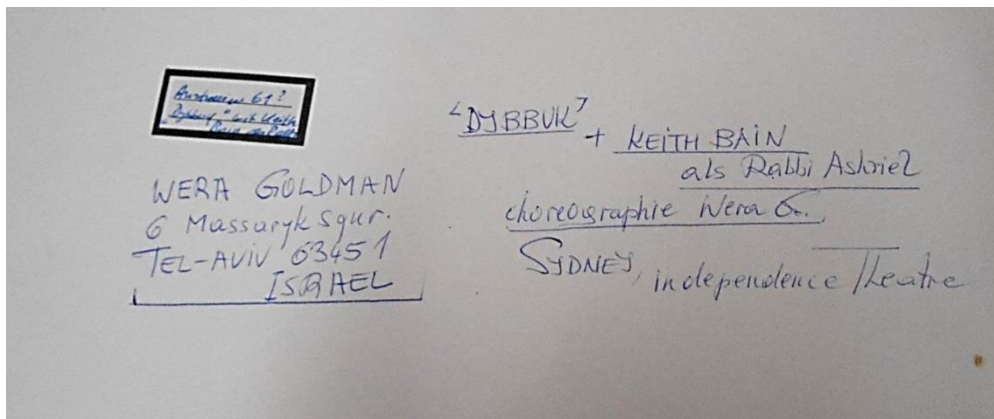 Australien 61?
"Dybbuk" mit Keith
Bain als Rabbi
WERA GOLDMAN
6 Massaryk squr.
TEL-AVIV 63451
ISRAEL
"DYBBUK"
+ KEITH BAIN
als Rabbi Ashriel
choreographie Wera G.
SYDNEY, independence Theatre